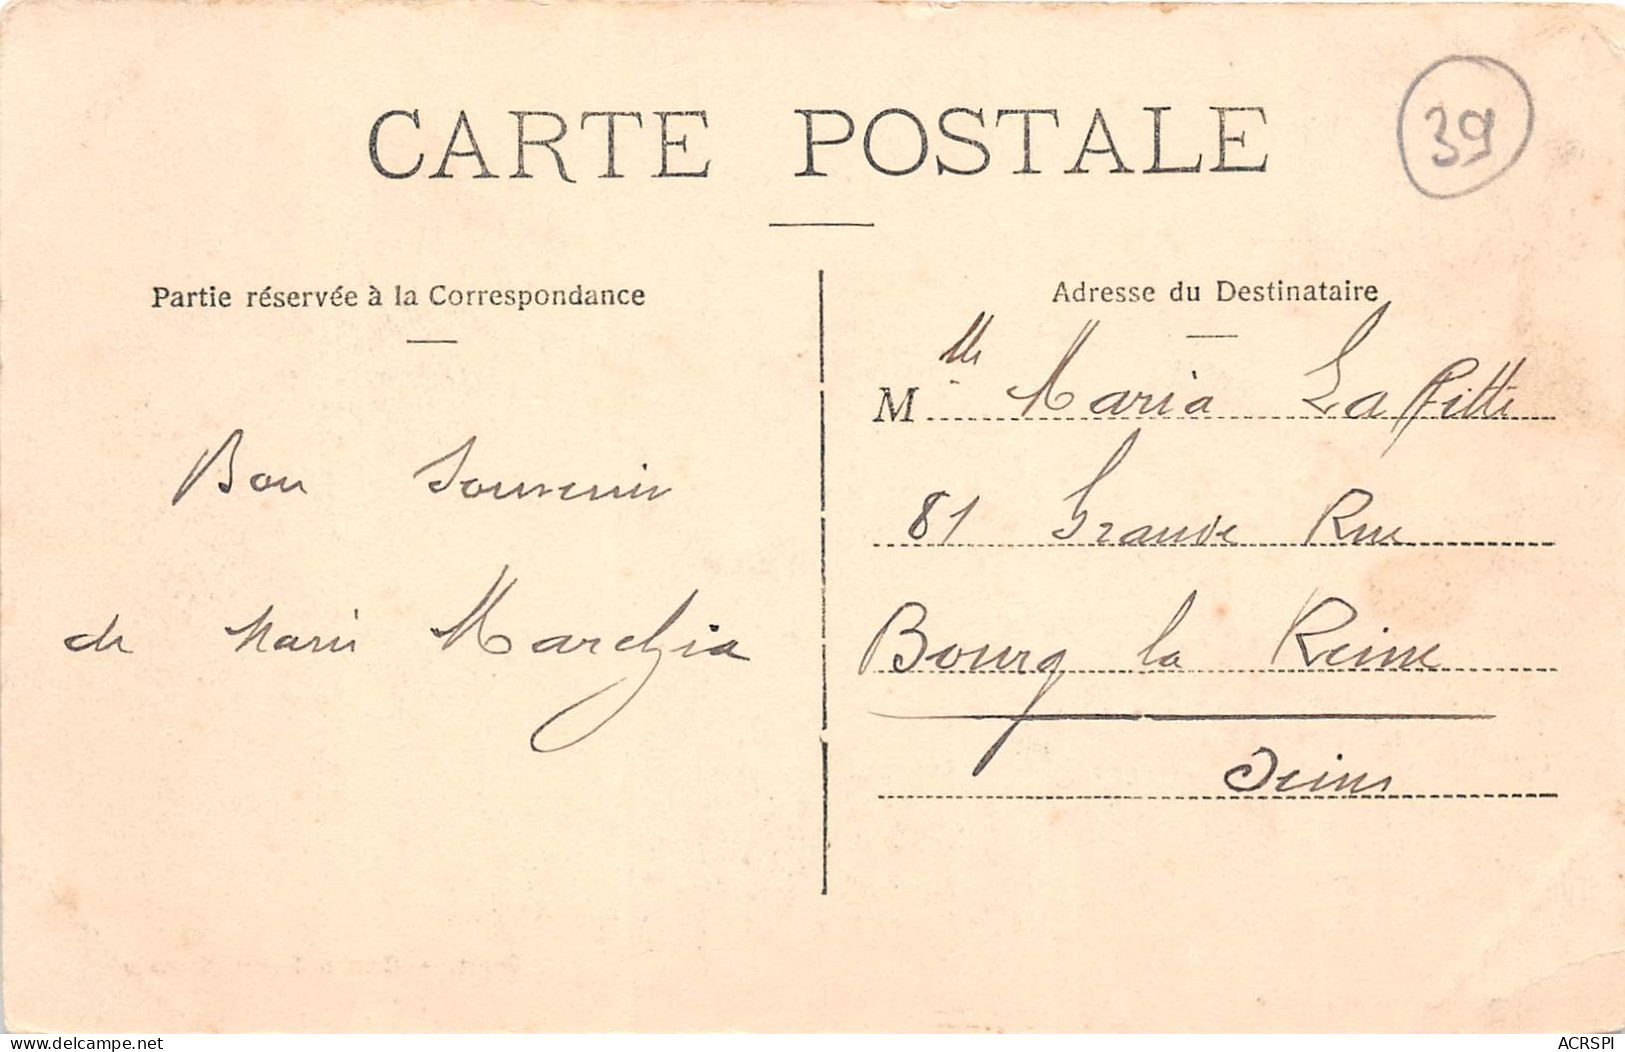 CARTE POSTALE
39
Partie réservée à la Correspondance
Adresse du Destinataire
Bon Souvenir
de Marie
Mlle Maria Lafitte
81 Grande Rue
Bourg la Reine
Seine
delcampe.net
ACRSPI